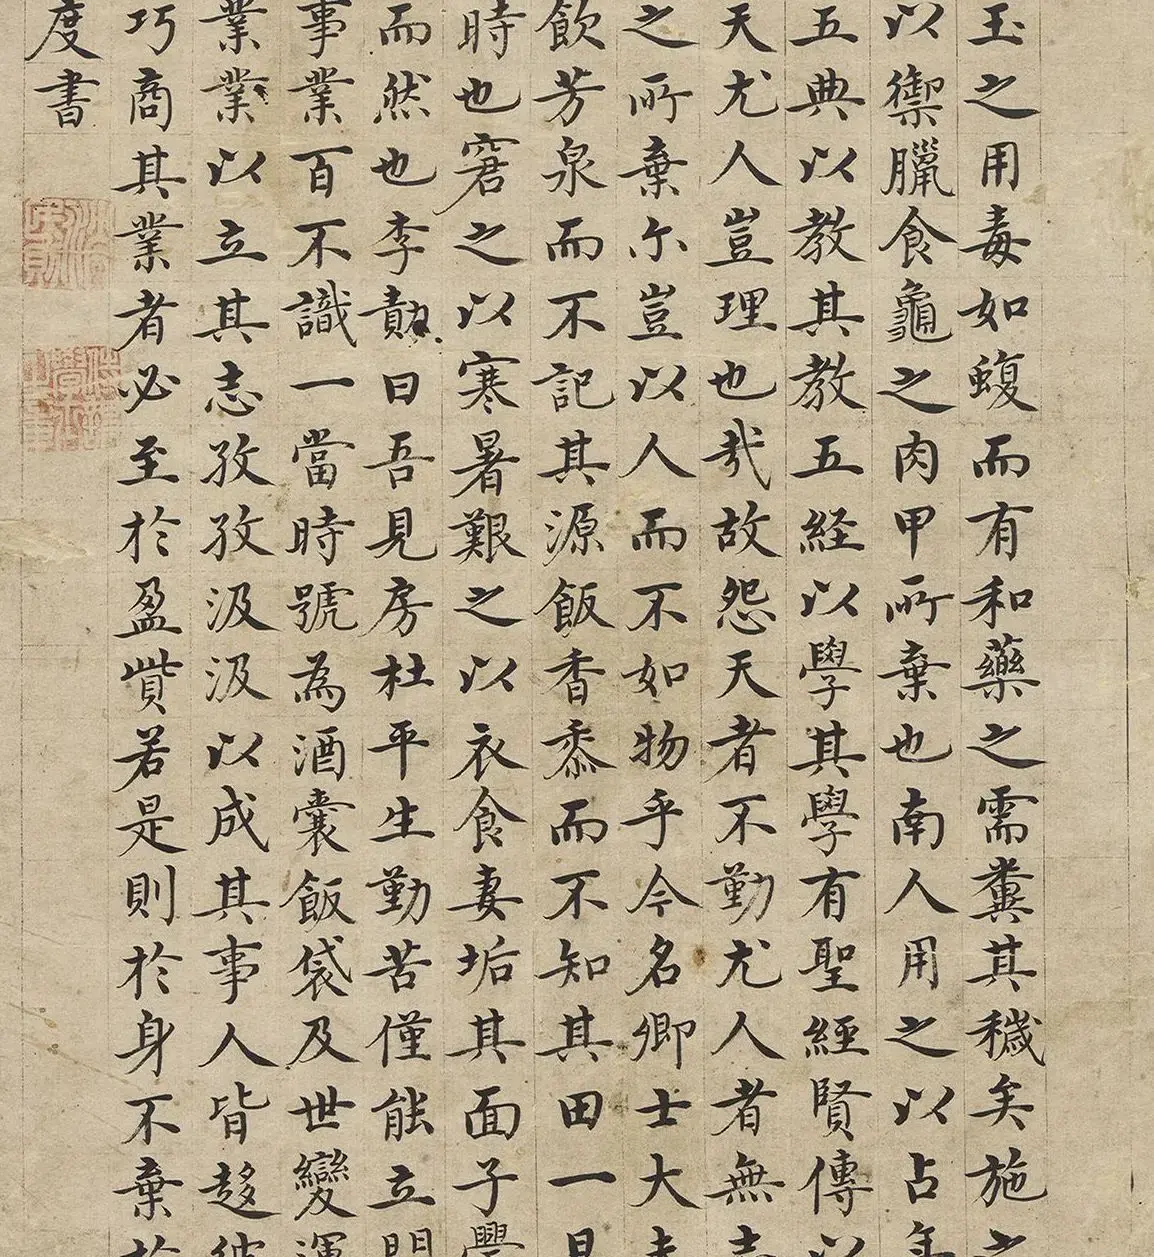 玉之用毒如蝮而有和藥之需糞其穢矣施之
以禦臘食龜之肉甲所棄也南人用之以占年
五典以教其教五經以學其學有聖經賢傳以
天尤人豈理也哉故怨天者不勤尤人者無志
之所棄尔豈以人而不如物乎今名卿士大夫
飲芳泉而不記其源飯香黍而不知其田一旦
時也窘之以寒暑艱之以衣食妻垢其面子學
而然也李勣曰吾見房杜平生勤苦僅能立門
事業百不識一當時號為酒囊飯袋及世變運
業業以立其志孜孜汲汲以成其事人皆趍彼
巧商其業者必至於盈貲若是則於身不棄於
度書